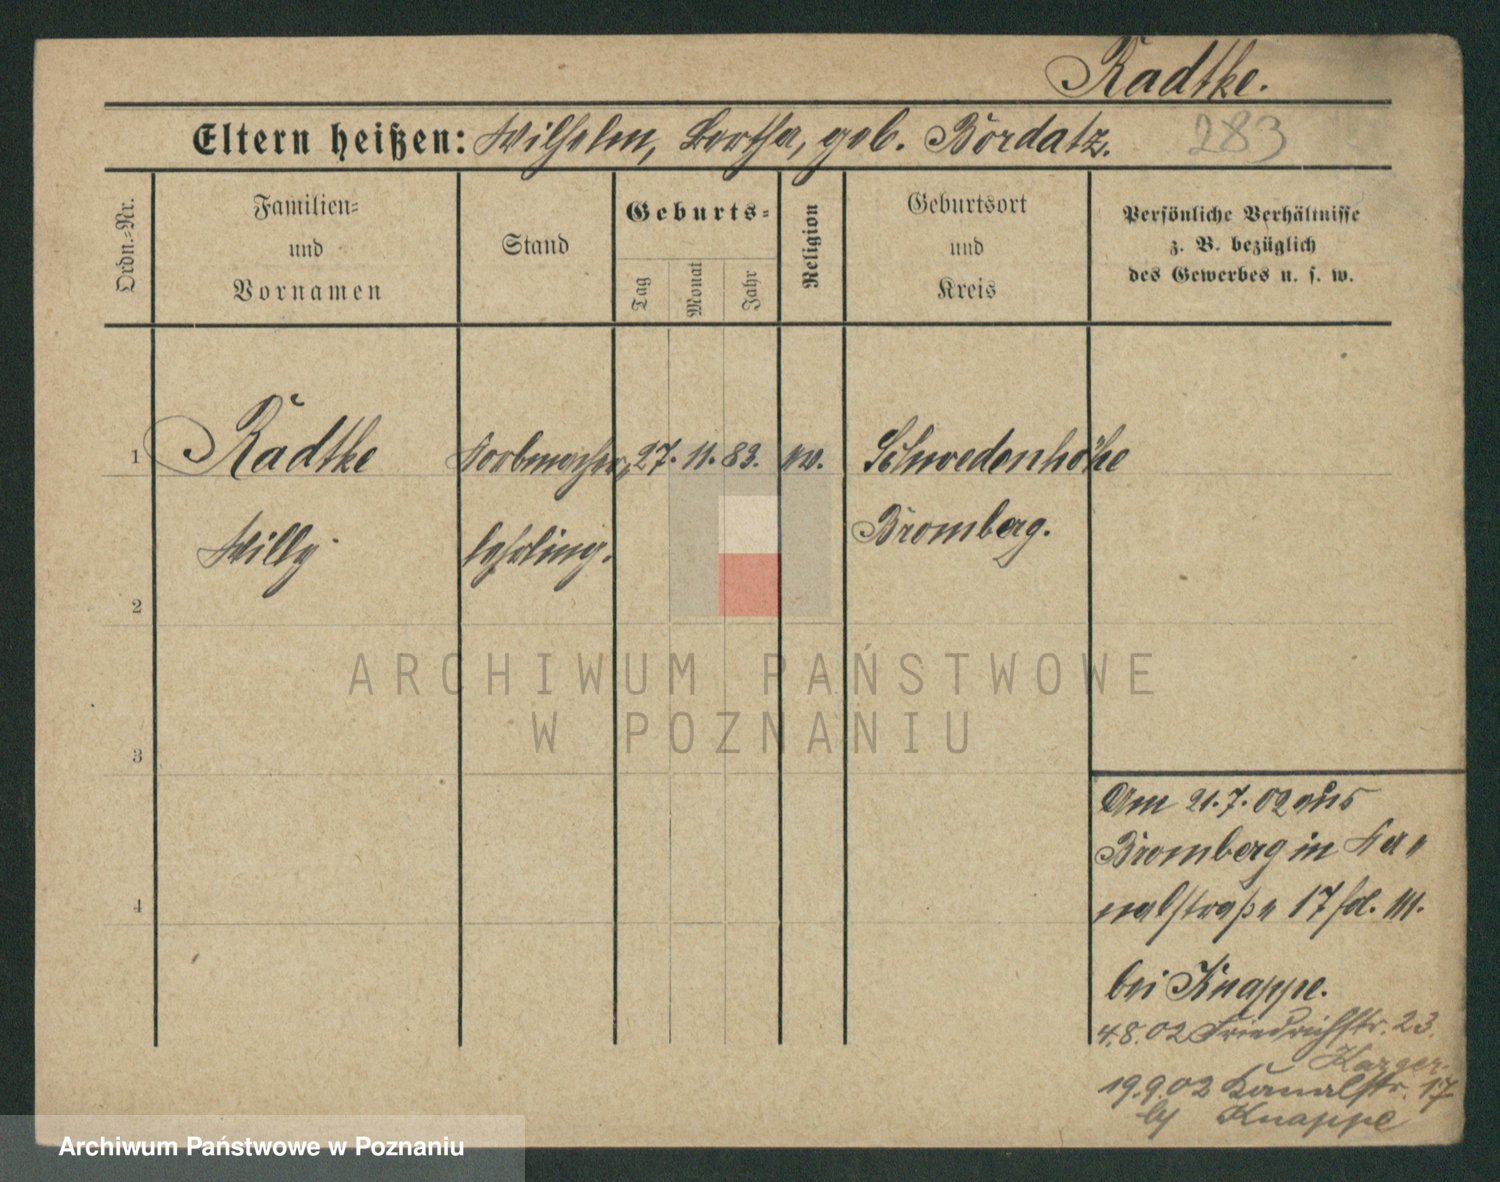 Radtke.
Eltern heißen: Wilhelm, Bertha, geb. Bordatz.
283
Ordn.=Nr.
Familien=
und
Vornamen
Stand
Geburts=
Tag
Monat
Jahr
Religion
Geburtsort
und
Kreis
Persönliche Verhältnisse
z. B. bezüglich
des Gewerbes u. s. w.
1 Radtke Korbmacher= 27. 11. 83. ev. Schwedenhöhe
Willy lehrling. Bromberg.
2
ARCHIWUM PAŃSTWOWE
W POZNANIU
3
4
Am 21.7.02 aus
Bromberg in Ka=
nalstraße 17 bei
bei Knappe.
4.8.02 Friedrichstr. 23.
Karger.
19.9.02 Kanalstr. 17
Knappe
Archiwum Państwowe w Poznaniu